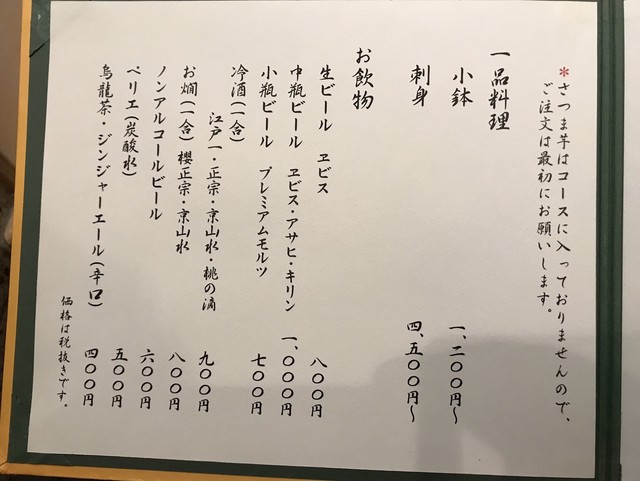 *さつま芋はコースに入っておりませんので、
ご注文は最初にお願いします。
一品料理
小鉢 一、二〇〇円〜
刺身 四、五〇〇円〜
お飲物
生ビール ヱビス 八〇〇円
中瓶ビール ヱビス・アサヒ・キリン 一、〇〇〇円
小瓶ビール プレミアムモルツ 七〇〇円
冷酒(一合)
江戸一・正宗・京山水・桃の滴 九〇〇円
お燗(一合) 櫻正宗・京山水 八〇〇円
ノンアルコールビール 六〇〇円
ペリエ(炭酸水) 五〇〇円
烏龍茶・ジンジャーエール(辛口) 四〇〇円
価格は税抜きです。